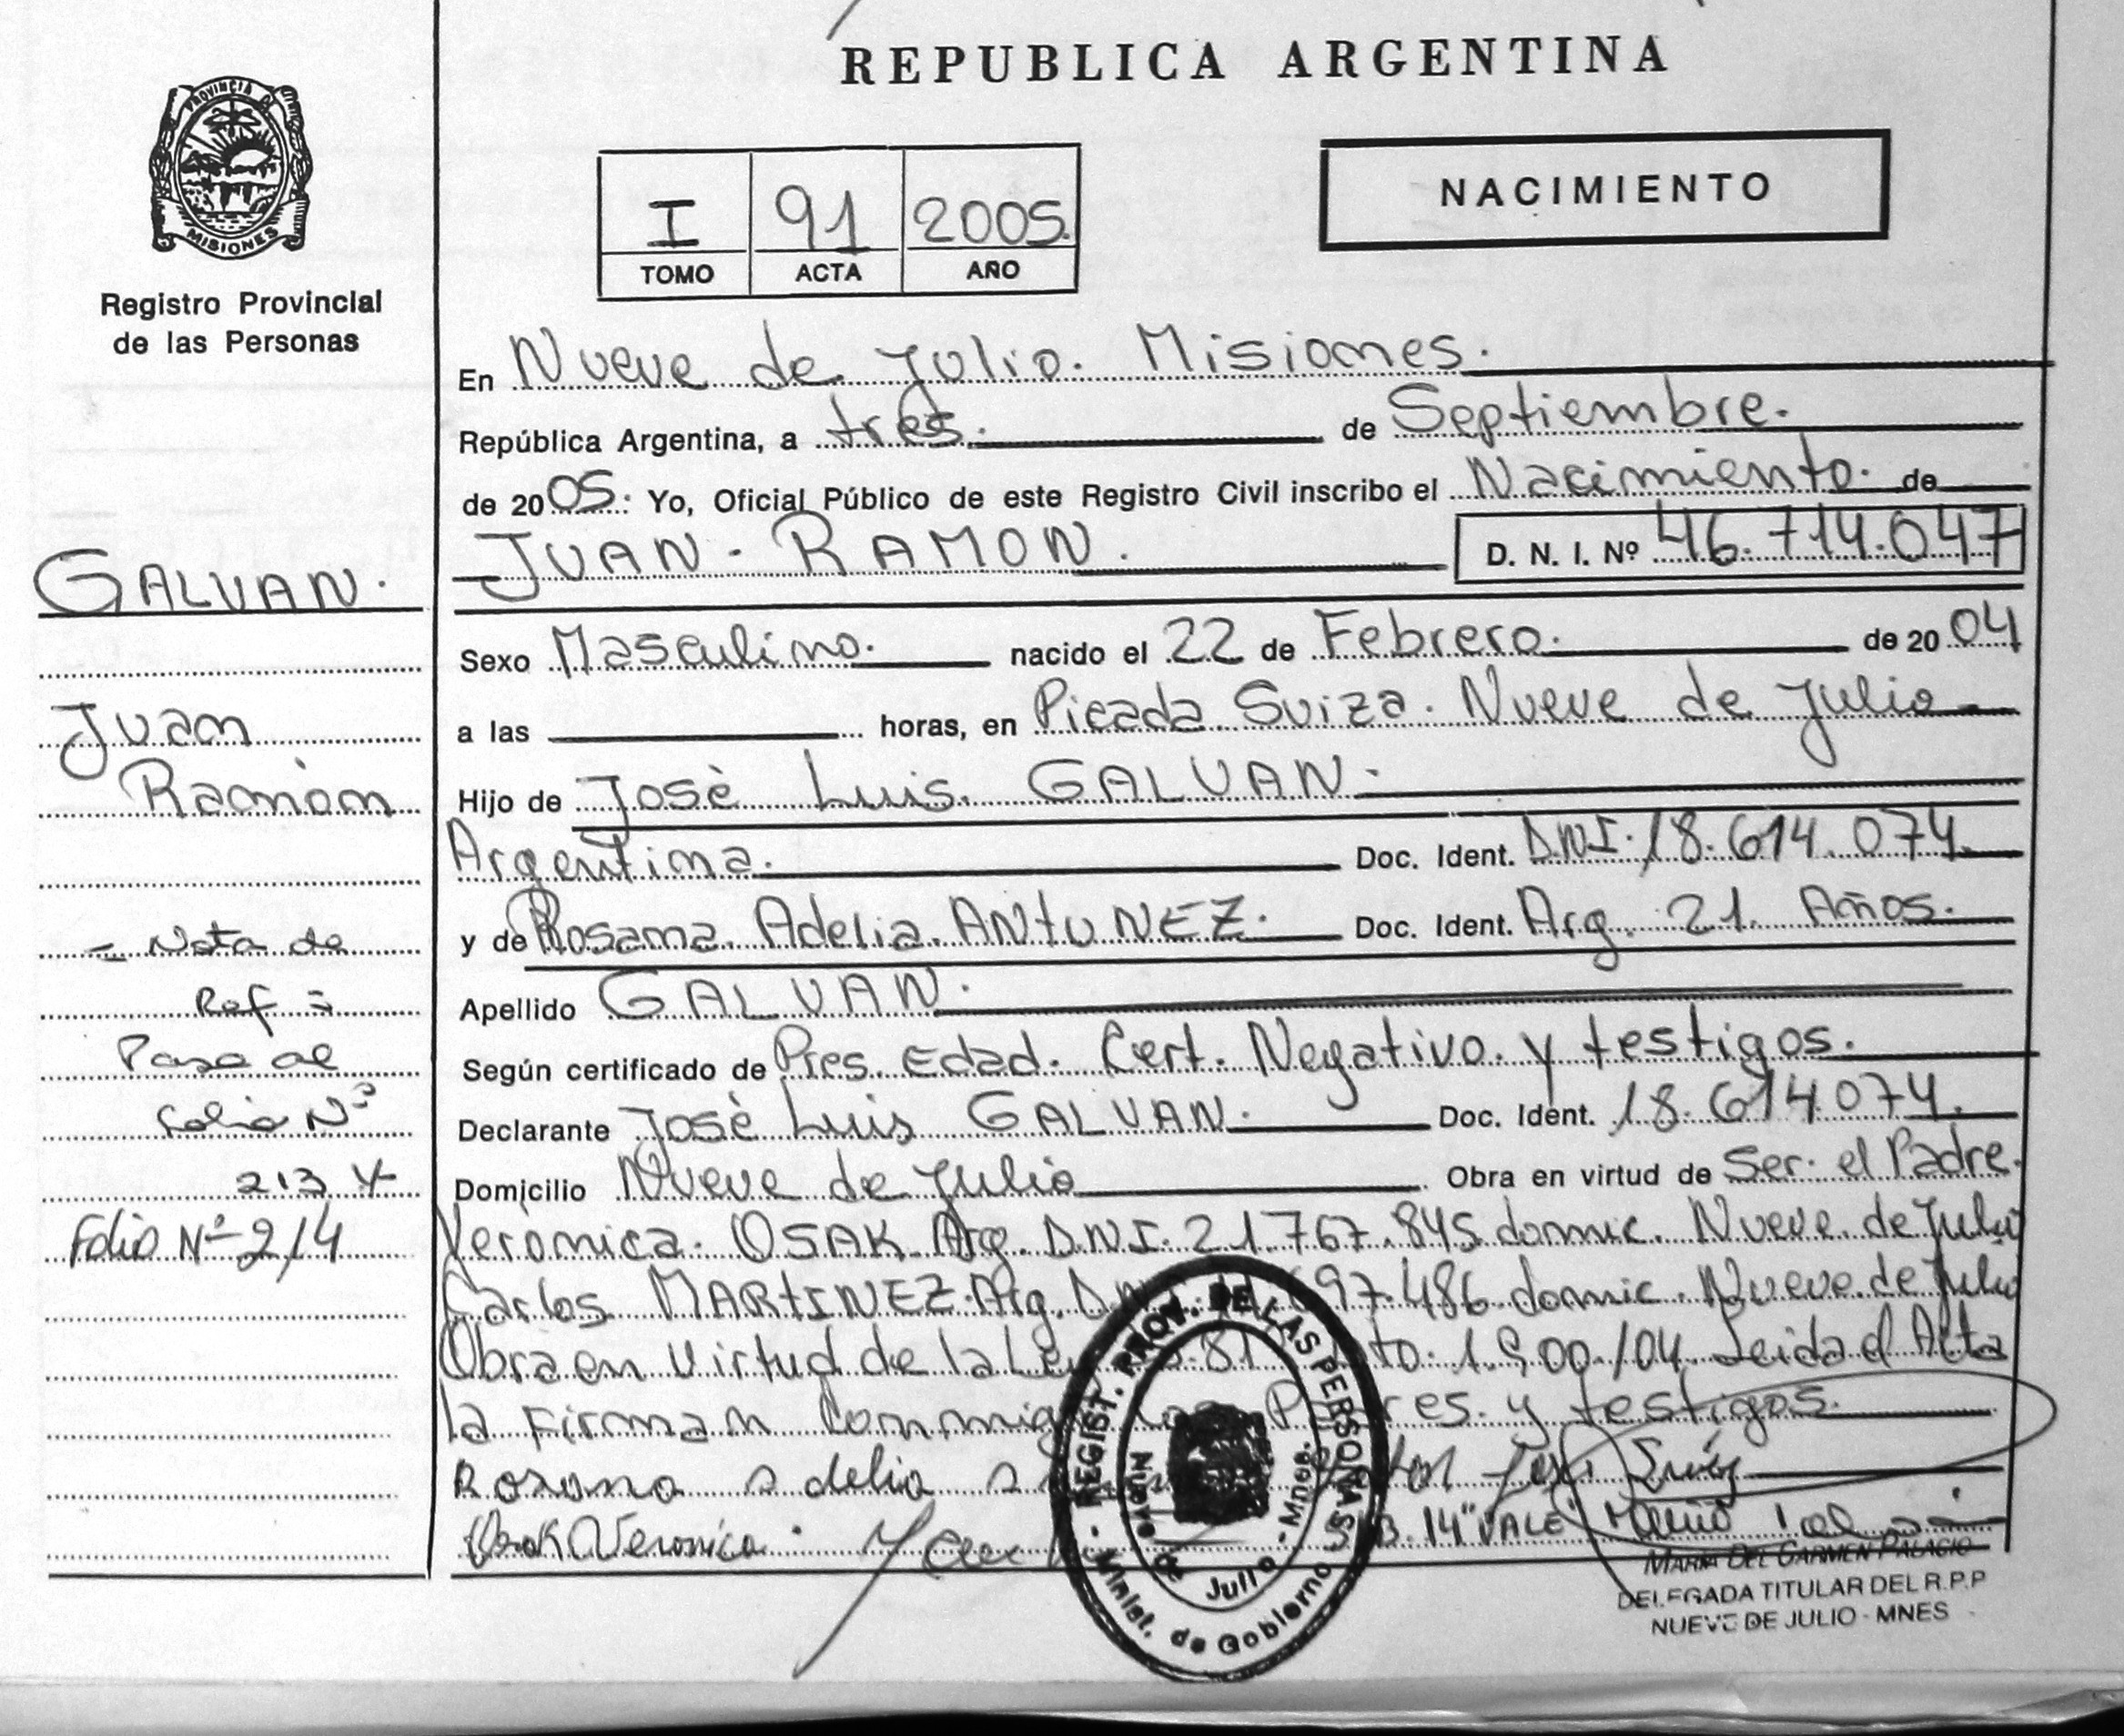 REPUBLICA ARGENTINA
PROVINCIA DE
MISIONES
Registro Provincial
de las Personas
I 91 2005.
TOMO ACTA AÑO
NACIMIENTO
En Nueve de Julio. Misiones.
República Argentina, a tres. de Septiembre.
de 2005: Yo, Oficial Público de este Registro Civil inscribo el Nacimiento. de
JUAN - RAMON. D. N. I. Nº 46.714.047
Sexo Masculino. nacido el 22 de Febrero. de 2004
a las horas, en Picada Suiza. Nueve de Julio
Hijo de Josè Luis. GALVAN.
Argentina. Doc. Ident. D.N.I. 18.614.074.
y de Rosana Adelia ANTUNEZ. Doc. Ident. Arg. 21. Años.
Apellido GALVAN.
Según certificado de Pres. Edad. Cert. Negativo. y testigos.
Declarante Josè Luis GALVAN. Doc. Ident. 18.614.074.
Domicilio Nueve de Julio Obra en virtud de Ser: el Padre.
Verònica. OSAK Arg. D.N.I. 21.767.845 domic. Nueve de Julio
Carlos MARTINEZ Arg. 697.486 domic. Nueve de Julio
Obra en Virtud de la Ley 1.900/04 Leida el Acta
la Firman y testigos.
Rosana adelia
Osak Veronica
14" VALE
GALVAN.
Juan
Ramòn
- Nota de
Ref =
Pasa al
Folio Nº
213 y
Folio Nº 214
REGIST. PROV. DE LAS PERSONAS
Minist. de Gobierno
Nueve de Julio - Mnes.
MARIA DEL CARMEN PALACIO
DELEGADA TITULAR DEL R.P.P
NUEVE DE JULIO - MNES